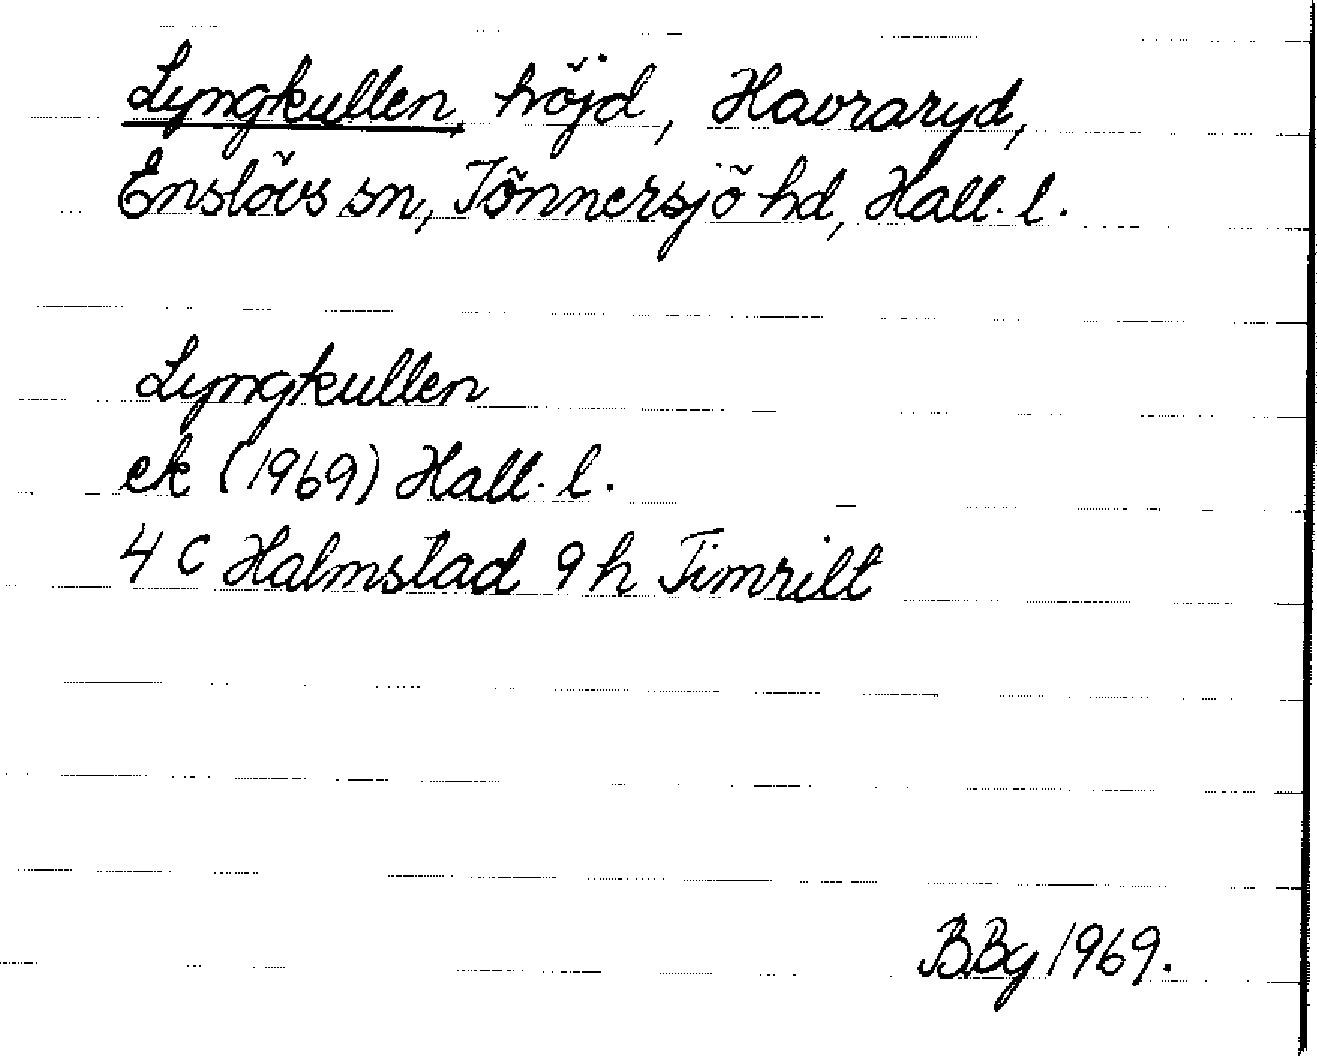 Lyngkullen, höjd, Havraryd,
Enslövs sn, Tönnersjö hd, Hall. l.
Lyngkullen
ek (1969) Hall. l.
4 C Halmstad 9 h Timrilt
BBg 1969.